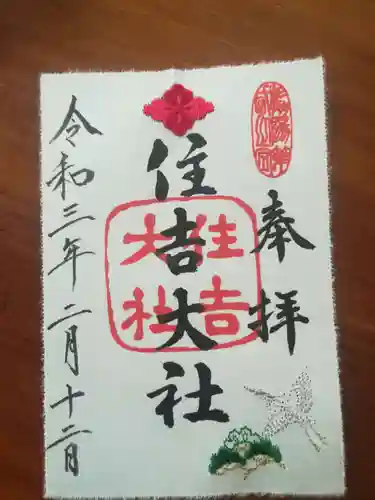 奉拝
住吉大社
住吉大社
令和三年二月十二日